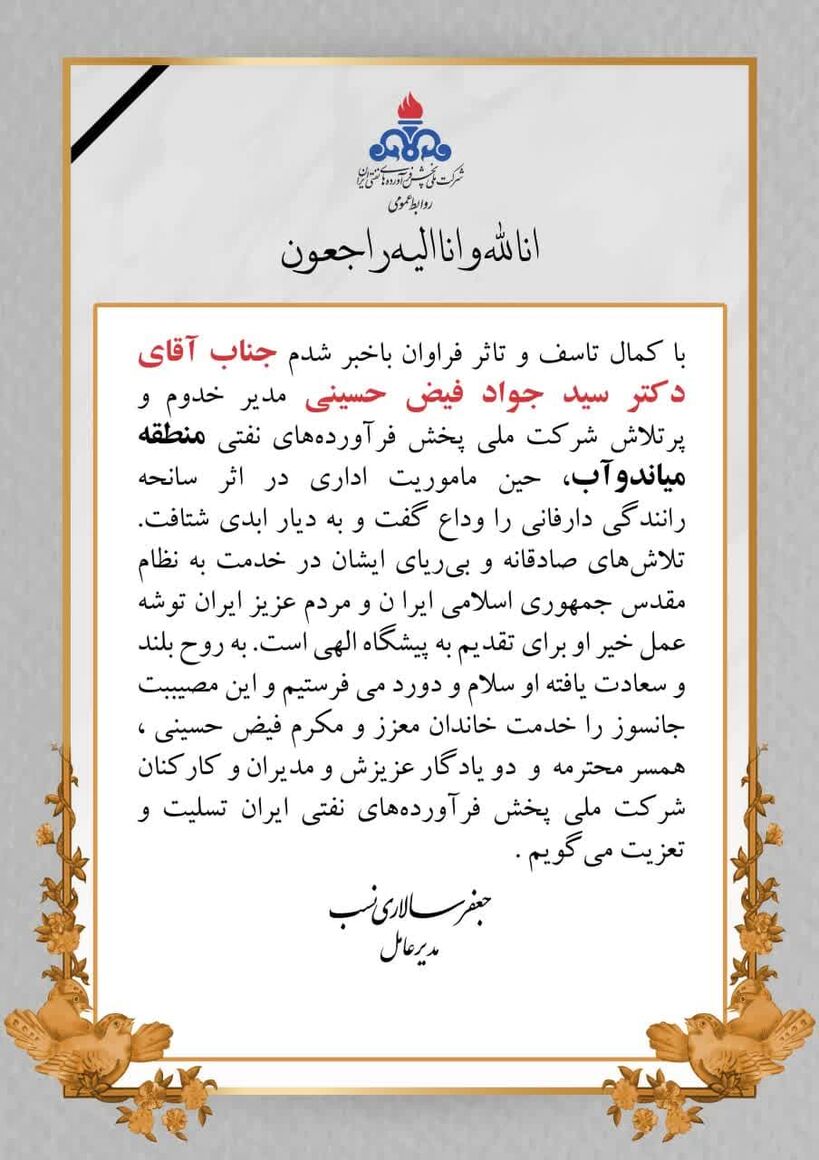 شرکت ملی پخش فرآورده‌های نفتی ایران
روابط عمومی
انا لله و انا الیه راجعون
با کمال تاسف و تاثر فراوان باخبر شدم جناب آقای
دکتر سید جواد فیض حسینی مدیر خدوم و
پرتلاش شرکت ملی پخش فرآورده‌های نفتی منطقه
میاندوآب، حین ماموریت اداری در اثر سانحه
رانندگی دارفانی را وداع گفت و به دیار ابدی شتافت.
تلاش‌های صادقانه و بی‌ریای ایشان در خدمت به نظام
مقدس جمهوری اسلامی ایرا ن و مردم عزیز ایران توشه
عمل خیر او برای تقدیم به پیشگاه الهی است. به روح بلند
و سعادت یافته او سلام و دورد می فرستیم و این مصیببت
جانسوز را خدمت خاندان معزز و مکرم فیض حسینی ،
همسر محترمه و دو یادگار عزیزش و مدیران و کارکنان
شرکت ملی پخش فرآورده‌های نفتی ایران تسلیت و
تعزیت می‌گویم .
جعفر سالاری نسب
مدیر عامل